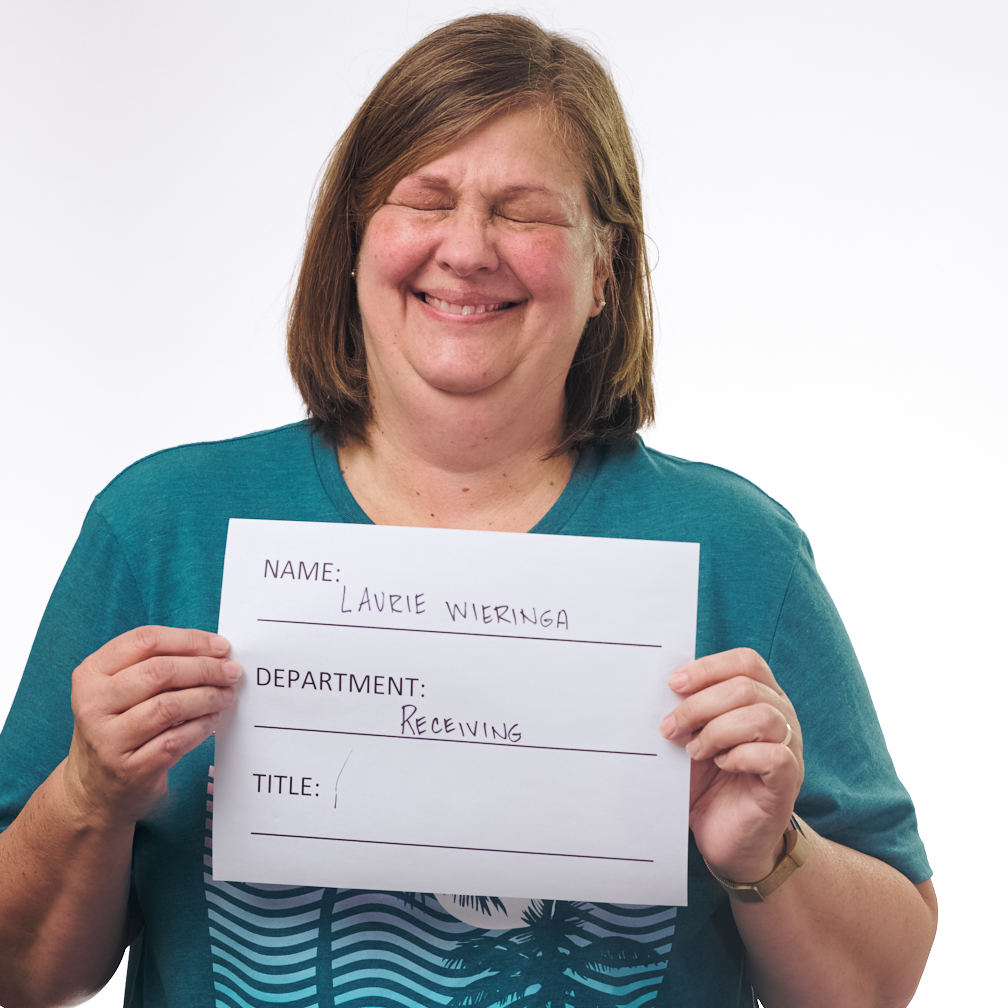 NAME:
LAURIE WIERINGA
DEPARTMENT:
RECEIVING
TITLE: